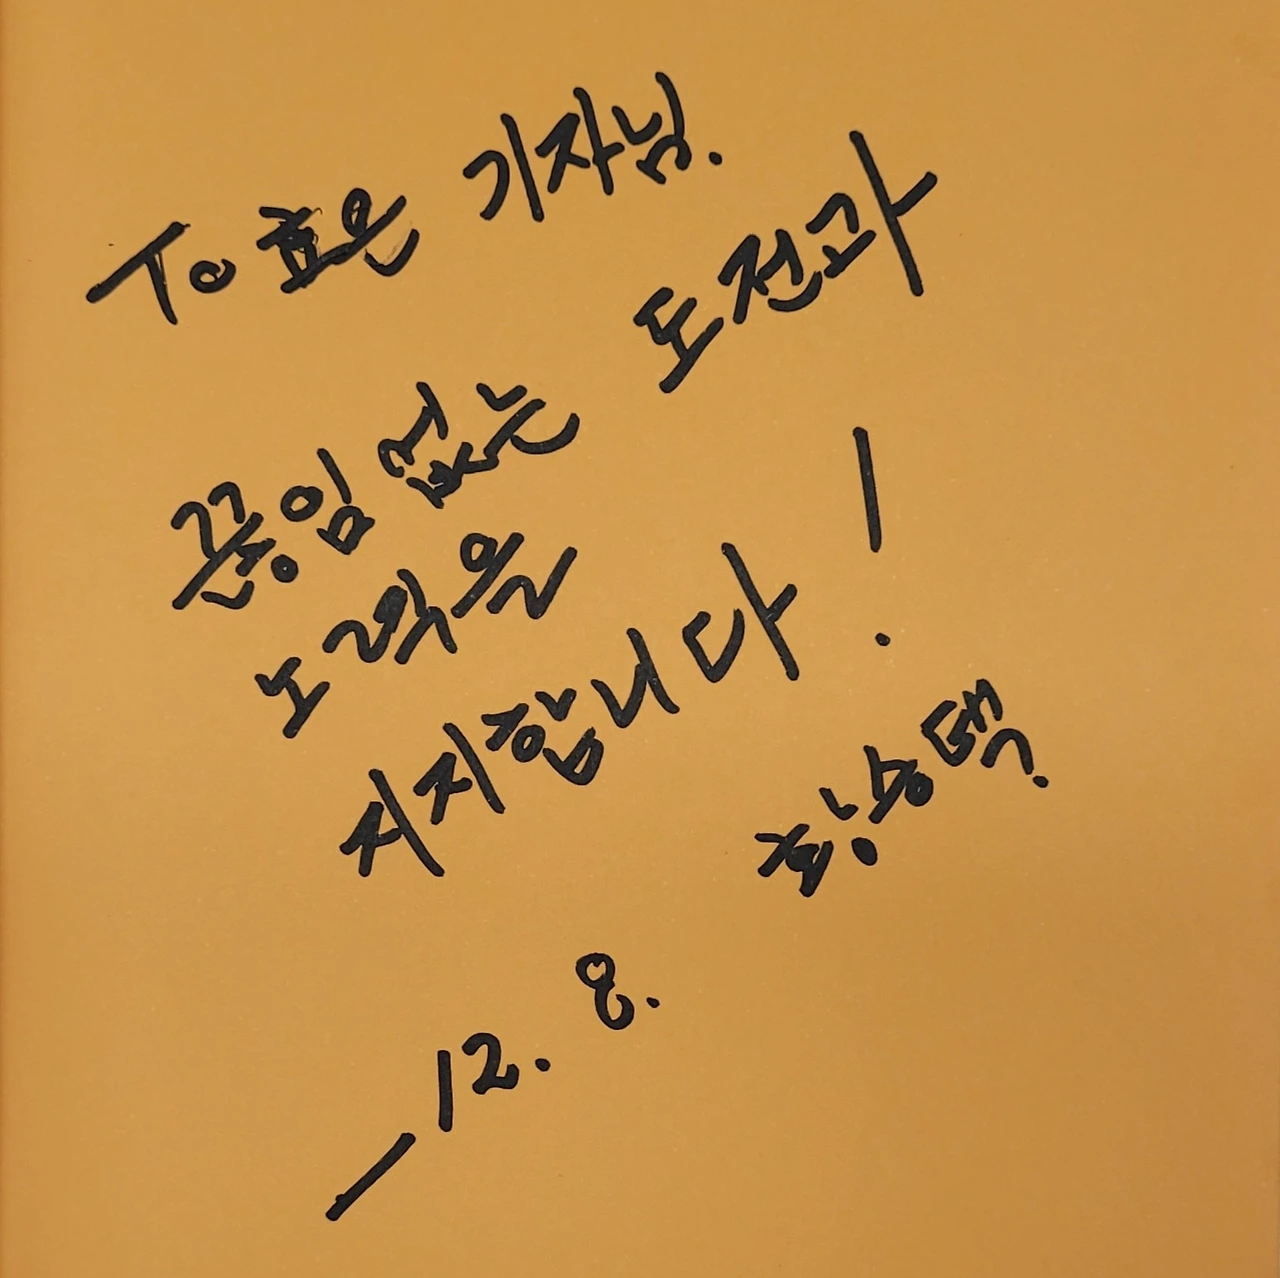 To 효은 기자님.
끊임 없는 도전과
노력을
지지합니다!
황승택.
- 12. 8.